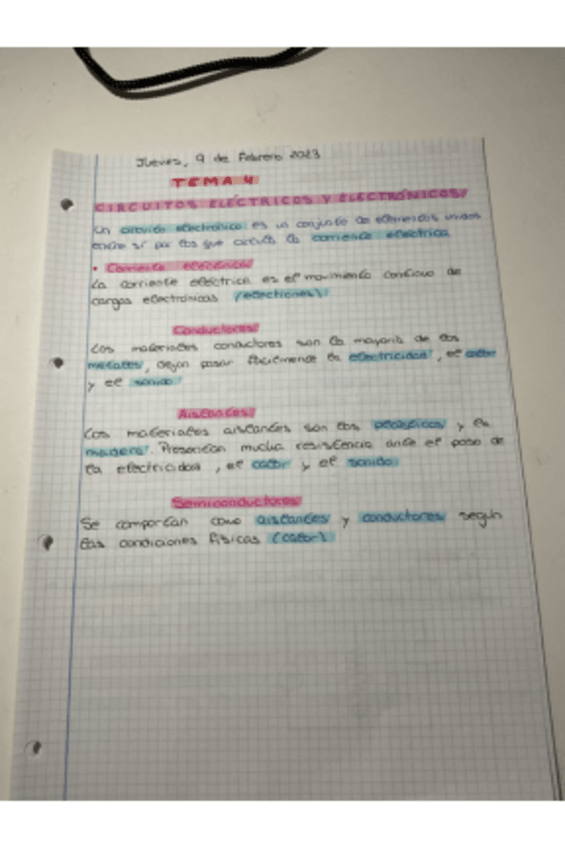 Jueves, 9 de Febrero 2023
TEMA 4
CIRCUITOS ELÉCTRICOS Y ELECTRÓNICOS
Un circuito electrónico es un conjunto de elementos unidos
entre sí por los que circula la corriente eléctrica.
• Corriente eléctrica
La corriente eléctrica es el movimiento continuo de
cargas electrónicas (electrones).
Conductores
Los materiales conductores son la mayoría de los
metales, dejan pasar fácilmente la electricidad, el calor
y el sonido.
Aislantes
Los materiales aislantes son los plásticos y la
madera. Presentan mucha resistencia ante el paso de
la electricidad, el calor y el sonido.
Semiconductores
Se comportan como aislantes y conductores según
las condiciones físicas (calor).